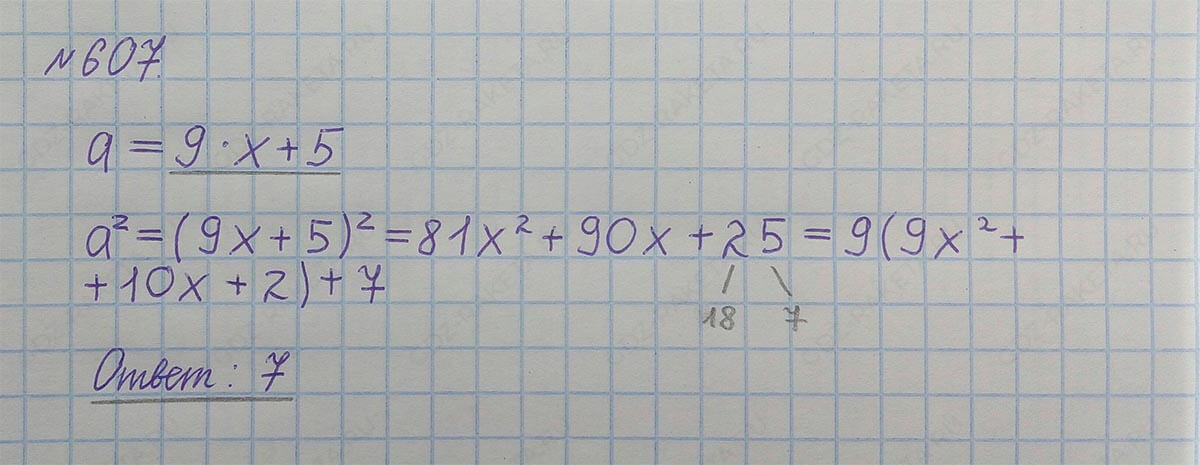 №607.
a = 9 · x + 5
a² = (9x + 5)² = 81x² + 90x + 25 = 9(9x² +
+ 10x + 2) + 7
18 7
Ответ: 7